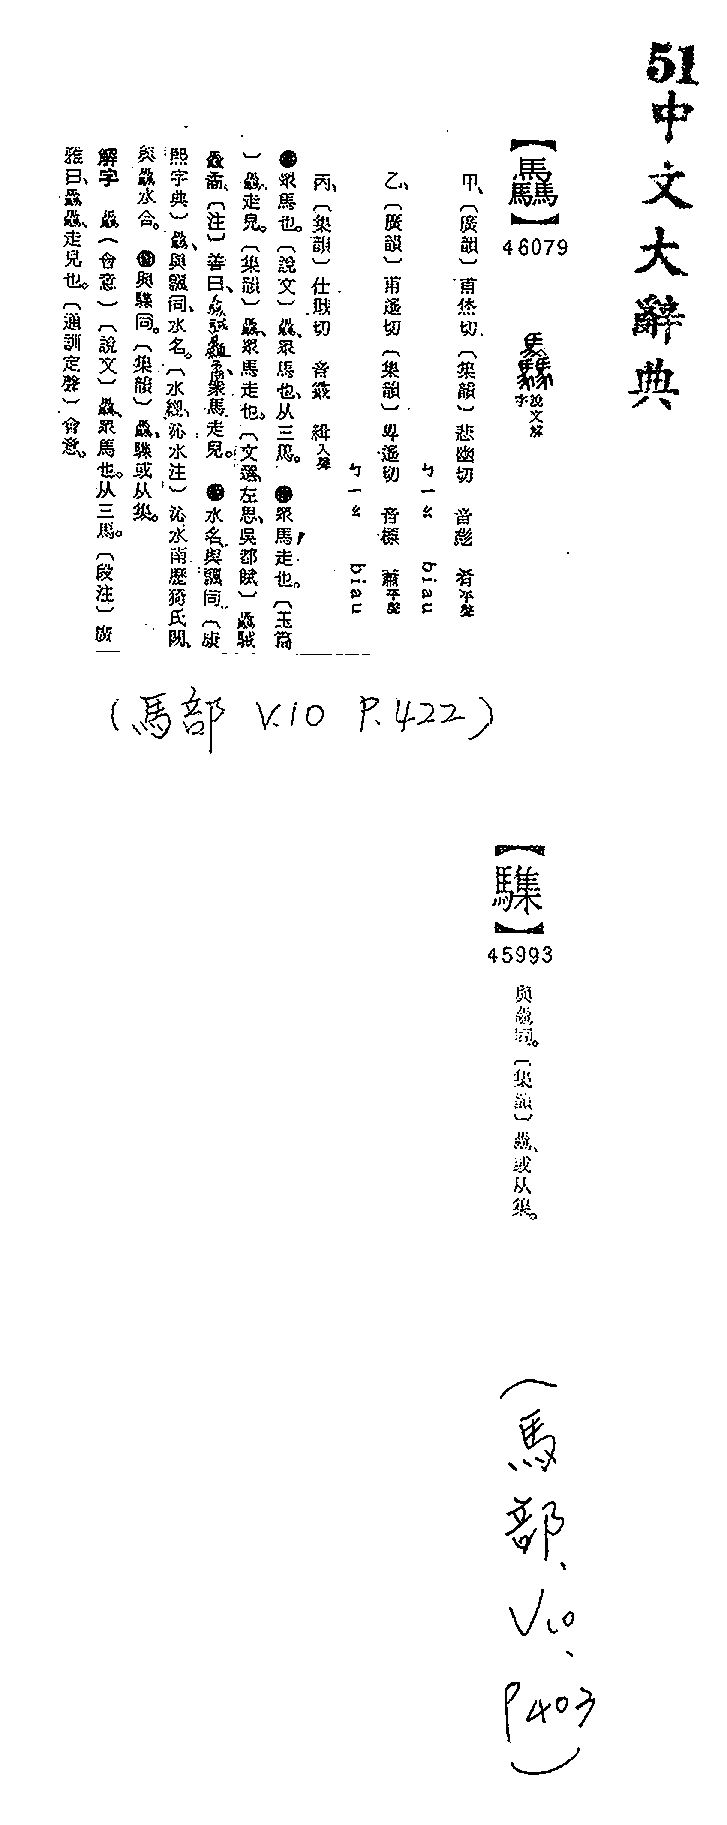 51中文大辭典
【驫】
46079
說文解
字
甲、〔廣韻〕甫烋切〔集韻〕悲幽切 音彪 肴平聲
ㄅㄧㄠ biau
乙、〔廣韻〕甫遙切〔集韻〕卑遙切 音標 蕭平聲
ㄅㄧㄠ biau
丙、〔集韻〕仕戢切 音霵 緝入聲
眾馬也。〔說文〕驫、眾馬也、从三馬。 眾馬走也。〔玉篇
〕驫、走皃。〔集韻〕驫、眾馬走也。〔文選、左思、吳都賦〕驫駥
驫矞。〔注〕善曰、眾馬走皃。 水名、與𩙪同。〔康
熙字典〕驫、與𩙪同、水名。〔水經、沁水注〕沁水南歷猗氏關、
與驫水合。 與䯂同。〔集韻〕驫、䯂或从集。
解字 驫（會意）〔說文〕驫、眾馬也。从三馬。〔段注〕廣
雅曰、驫驫、走皃也。〔通訓定聲〕會意。
（馬部 V.10 P.422）
【䯂】
45993
與驫同。〔集韻〕驫、或从集。
（馬部、V10、P403）